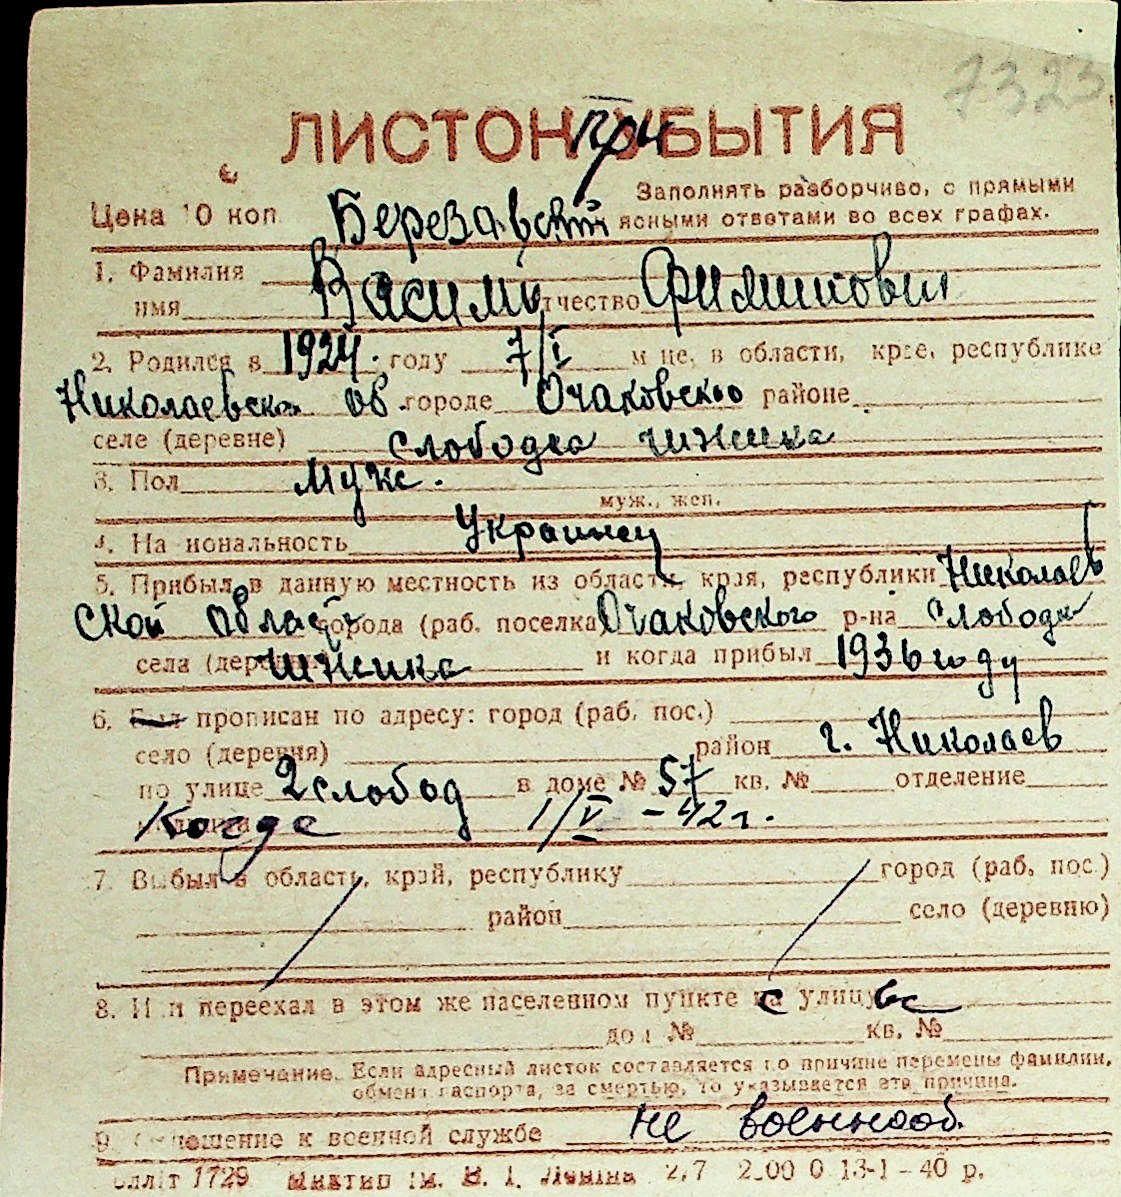 7323
ЛИСТОК при УБЫТИЯ
Заполнять разборчиво, с прямыми
Цена 10 коп. Березавский ясными ответами во всех графах.
1. Фамилия
имя Василий отчество Филиппович
2. Родился в 1924. году 7/I м-це, в области, крае, республике
Николаевской об. городе Очаковского районе
селе (деревне) слободка
3. Пол Муж.
муж., жен.
4. Национальность Украинец
5. Прибыл в данную местность из области, края, республики Николаев
ской области города (раб. поселка Очаковского р-на слободы
села (деревни) и когда прибыл 1936 году
6. Был прописан по адресу: город (раб. пос.)
село (деревня) район г. Николаев
по улице 2 слобод в доме № 57 кв. № отделение
Когда 1/V - 42 г.
7. Выбыл в область, край, республику город (раб. пос.)
район село (деревню)
8. Или переехал в этом же населенном пункте улицу
дом № кв. №
Примечание. Если адресный листок составляется по причине перемены фамилии,
обмена паспорта, за смертью, то указывается эта причина.
9. Отношение к военной службе не военнооб.
1729 им. В. І. Леніна 2,7 2.00 0 13-1 - 40 р.